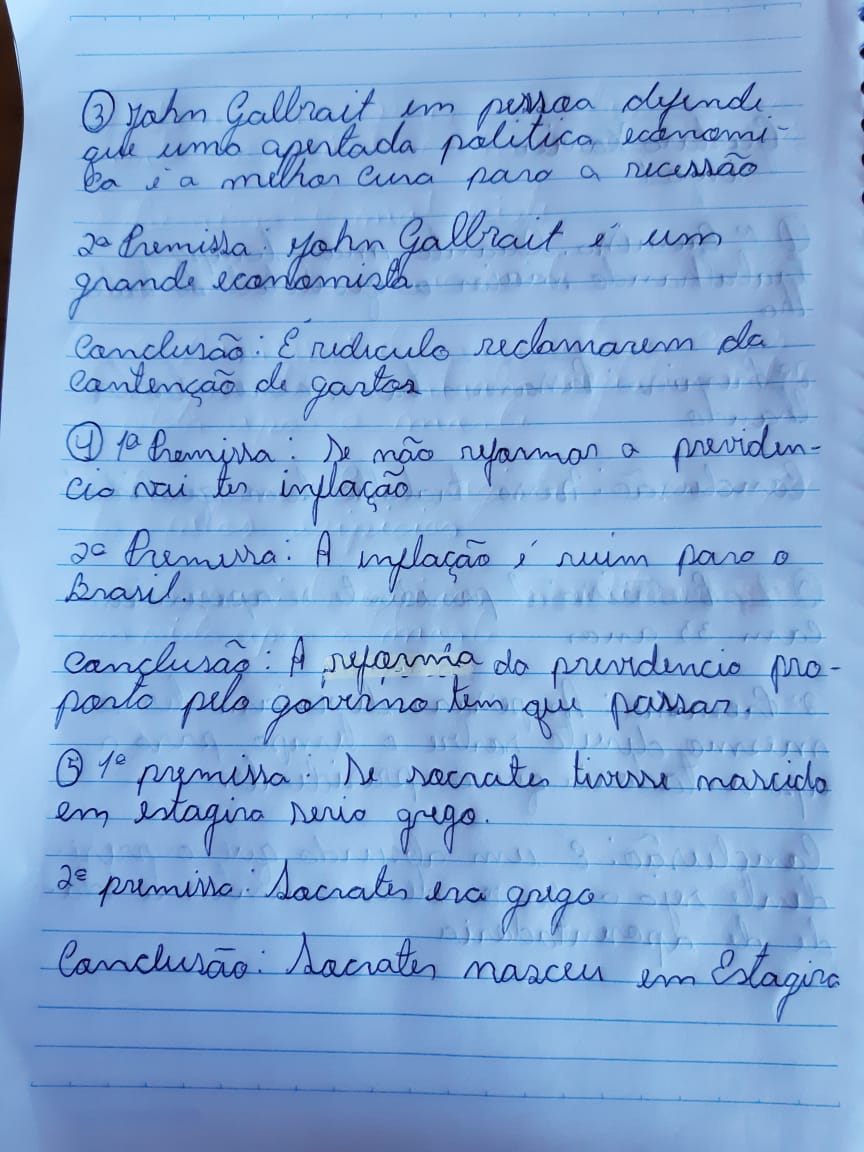 ③ John Galbrait em pessoa defende
que uma apertada politica economi-
ca é a melhor cura para a recessão
2ª Premissa: John Galbrait é um
grande economista
Conclusão: É ridiculo reclamarem da
contenção de gastos
④ 1ª Premissa: Se não reformar a previden-
cia vai ter inflação
2ª Premissa: A inflação é ruim para o
Brasil.
Conclusão: A reforma da previdencia pro-
posta pelo governo tem que passar.
⑤ 1ª premissa: Se socrates tivesse nascido
em estagira seria grego.
2ª premissa: Socrates era grego
Conclusão: Socrates nasceu em Estagira